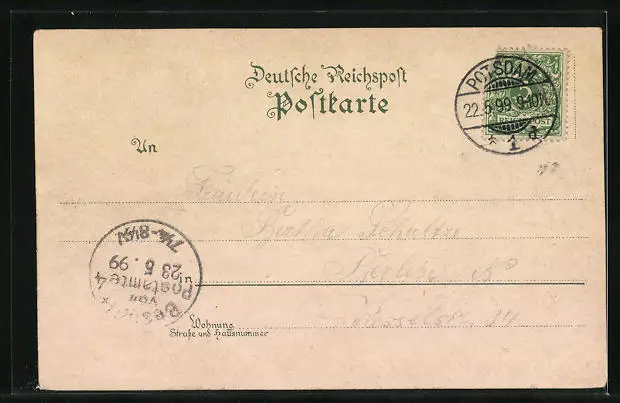 Deutsche Reichspost
Postkarte
POTSDAM
22.5.99. 9-10N.
* 1 d.
5
REICHSPOST
An
Fräulein
Bertha Schulze
in Berlin
Wohnung
Straße und Hausnummer
24
Bestellt
vom
Postamte 4
23 5. 99
7¼-8½V